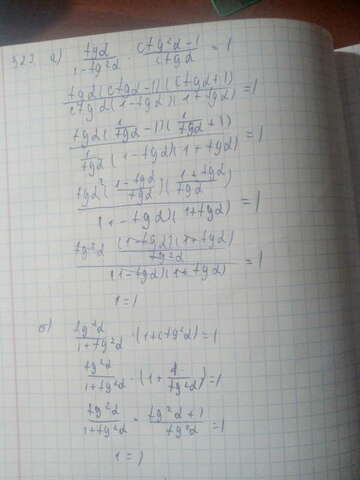 523. а) tgα / (1 - tg²α) · (ctg²α - 1) / ctgα = 1
tgα (ctgα - 1)(ctgα + 1) / ctgα (1 - tgα)(1 + tgα) = 1
tgα (1/tgα - 1)(1/tgα + 1) / 1/tgα (1 - tgα)(1 + tgα) = 1
tg²α ((1 - tgα)/tgα)((1 + tgα)/tgα) / (1 - tgα)(1 + tgα) = 1
tg²α (1 - tgα)(1 + tgα)/tg²α / (1 - tgα)(1 + tgα) = 1
1 = 1
б) tg²α / (1 + tg²α) · (1 + ctg²α) = 1
tg²α / (1 + tg²α) · (1 + 1/tg²α) = 1
tg²α / (1 + tg²α) · (tg²α + 1) / tg²α = 1
1 = 1